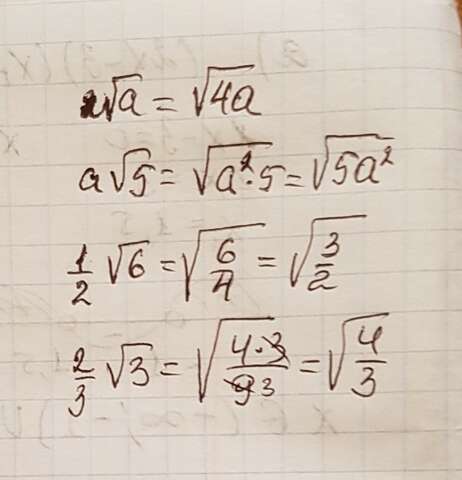 2√a = √4a
a√5 = √a²·5 = √5a²
1/2 √6 = √6/4 = √3/2
2/3 √3 = √4·3/9 3 = √4/3